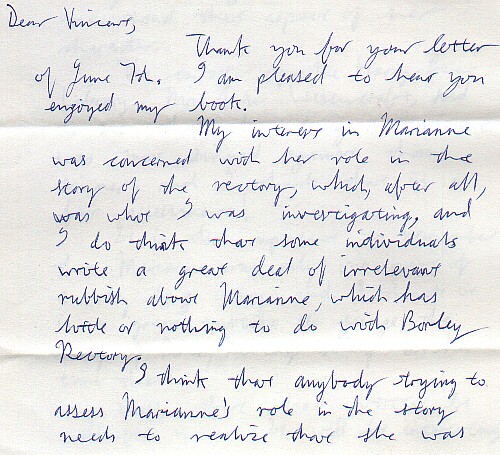 Dear Vincent,
Thank you for your letter
of June 7th. I am pleased to hear you
enjoyed my book.
My interest in Marianne
was concerned with her role in the
story of the rectory, which, after all,
was what I was investigating, and
I do think that some individuals
write a great deal of irrelevant
rubbish about Marianne, which has
little or nothing to do with Borley
Rectory.
I think that anybody trying to
assess Marianne's role in the story
needs to realize that she was